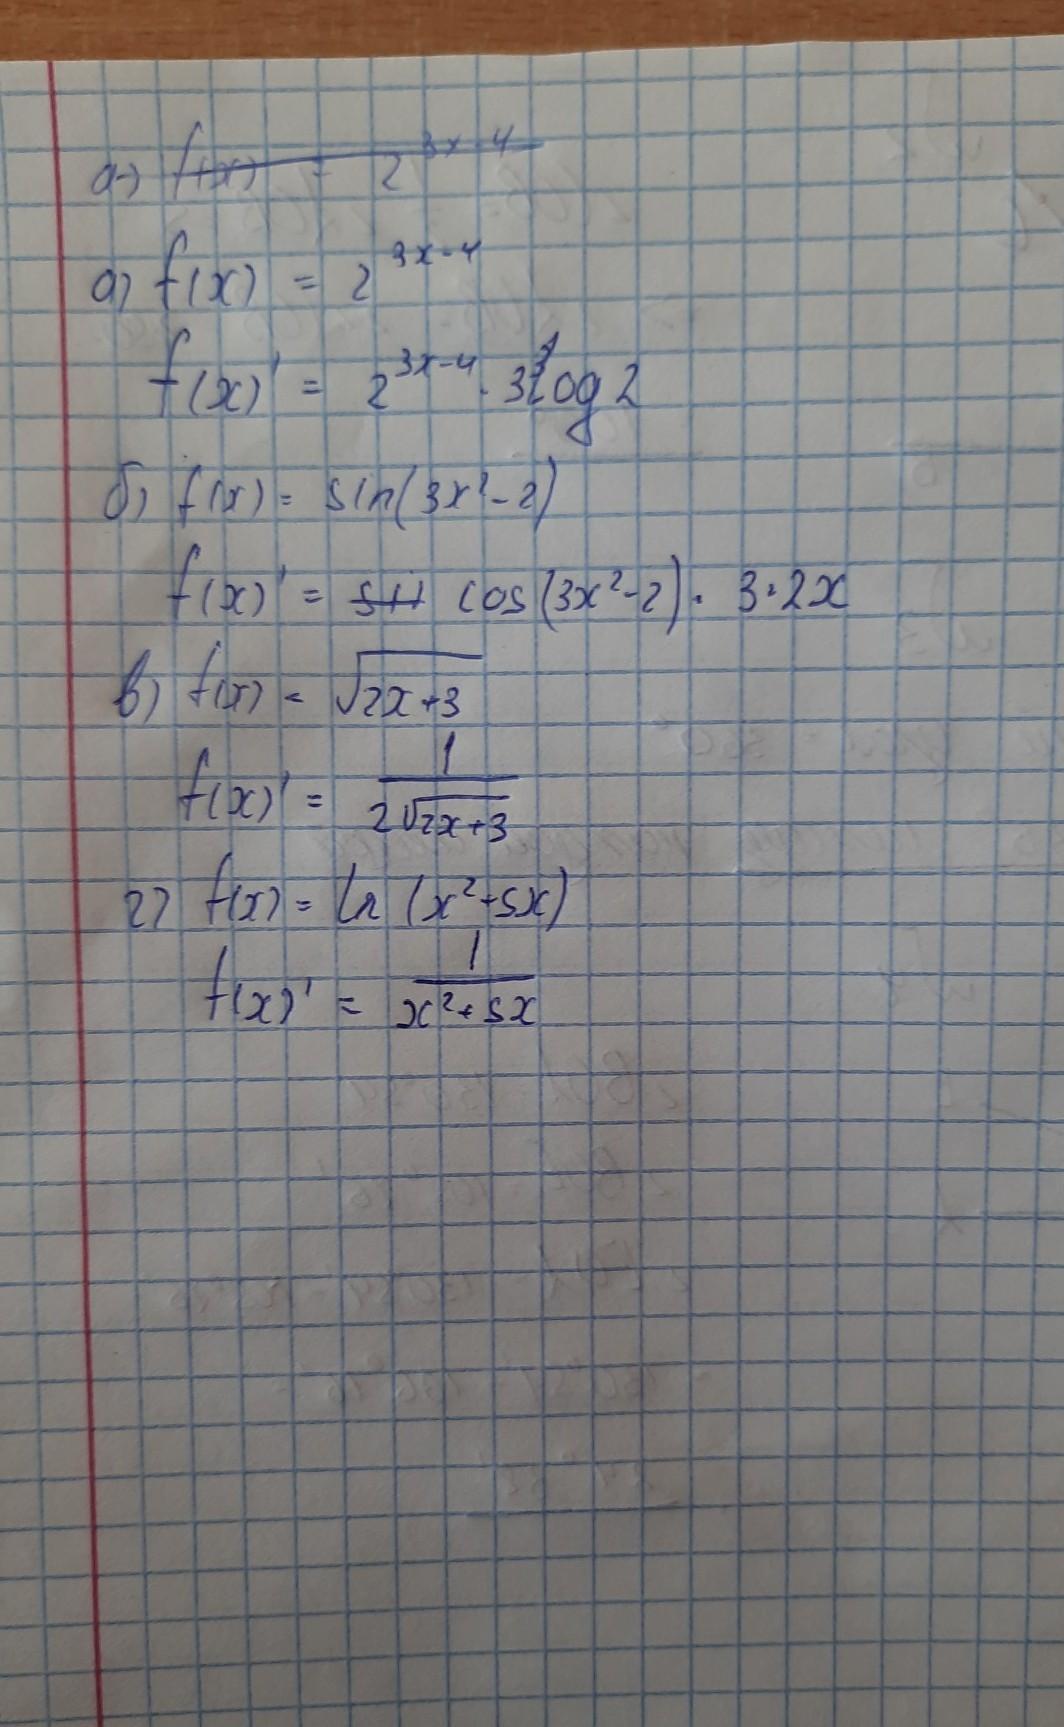 а) f(x) = 2^{3x-4}
а) f(x) = 2^{3x-4}
f(x)' = 2^{3x-4} · 3 log 2
б) f(x) = sin(3x²-2)
f(x)' = sin cos(3x²-2) · 3·2x
в) f(x) = √(2x+3)
f(x)' = 1/(2√(2x+3))
г) f(x) = ln (x²+5x)
f(x)' = 1/(x²+5x)